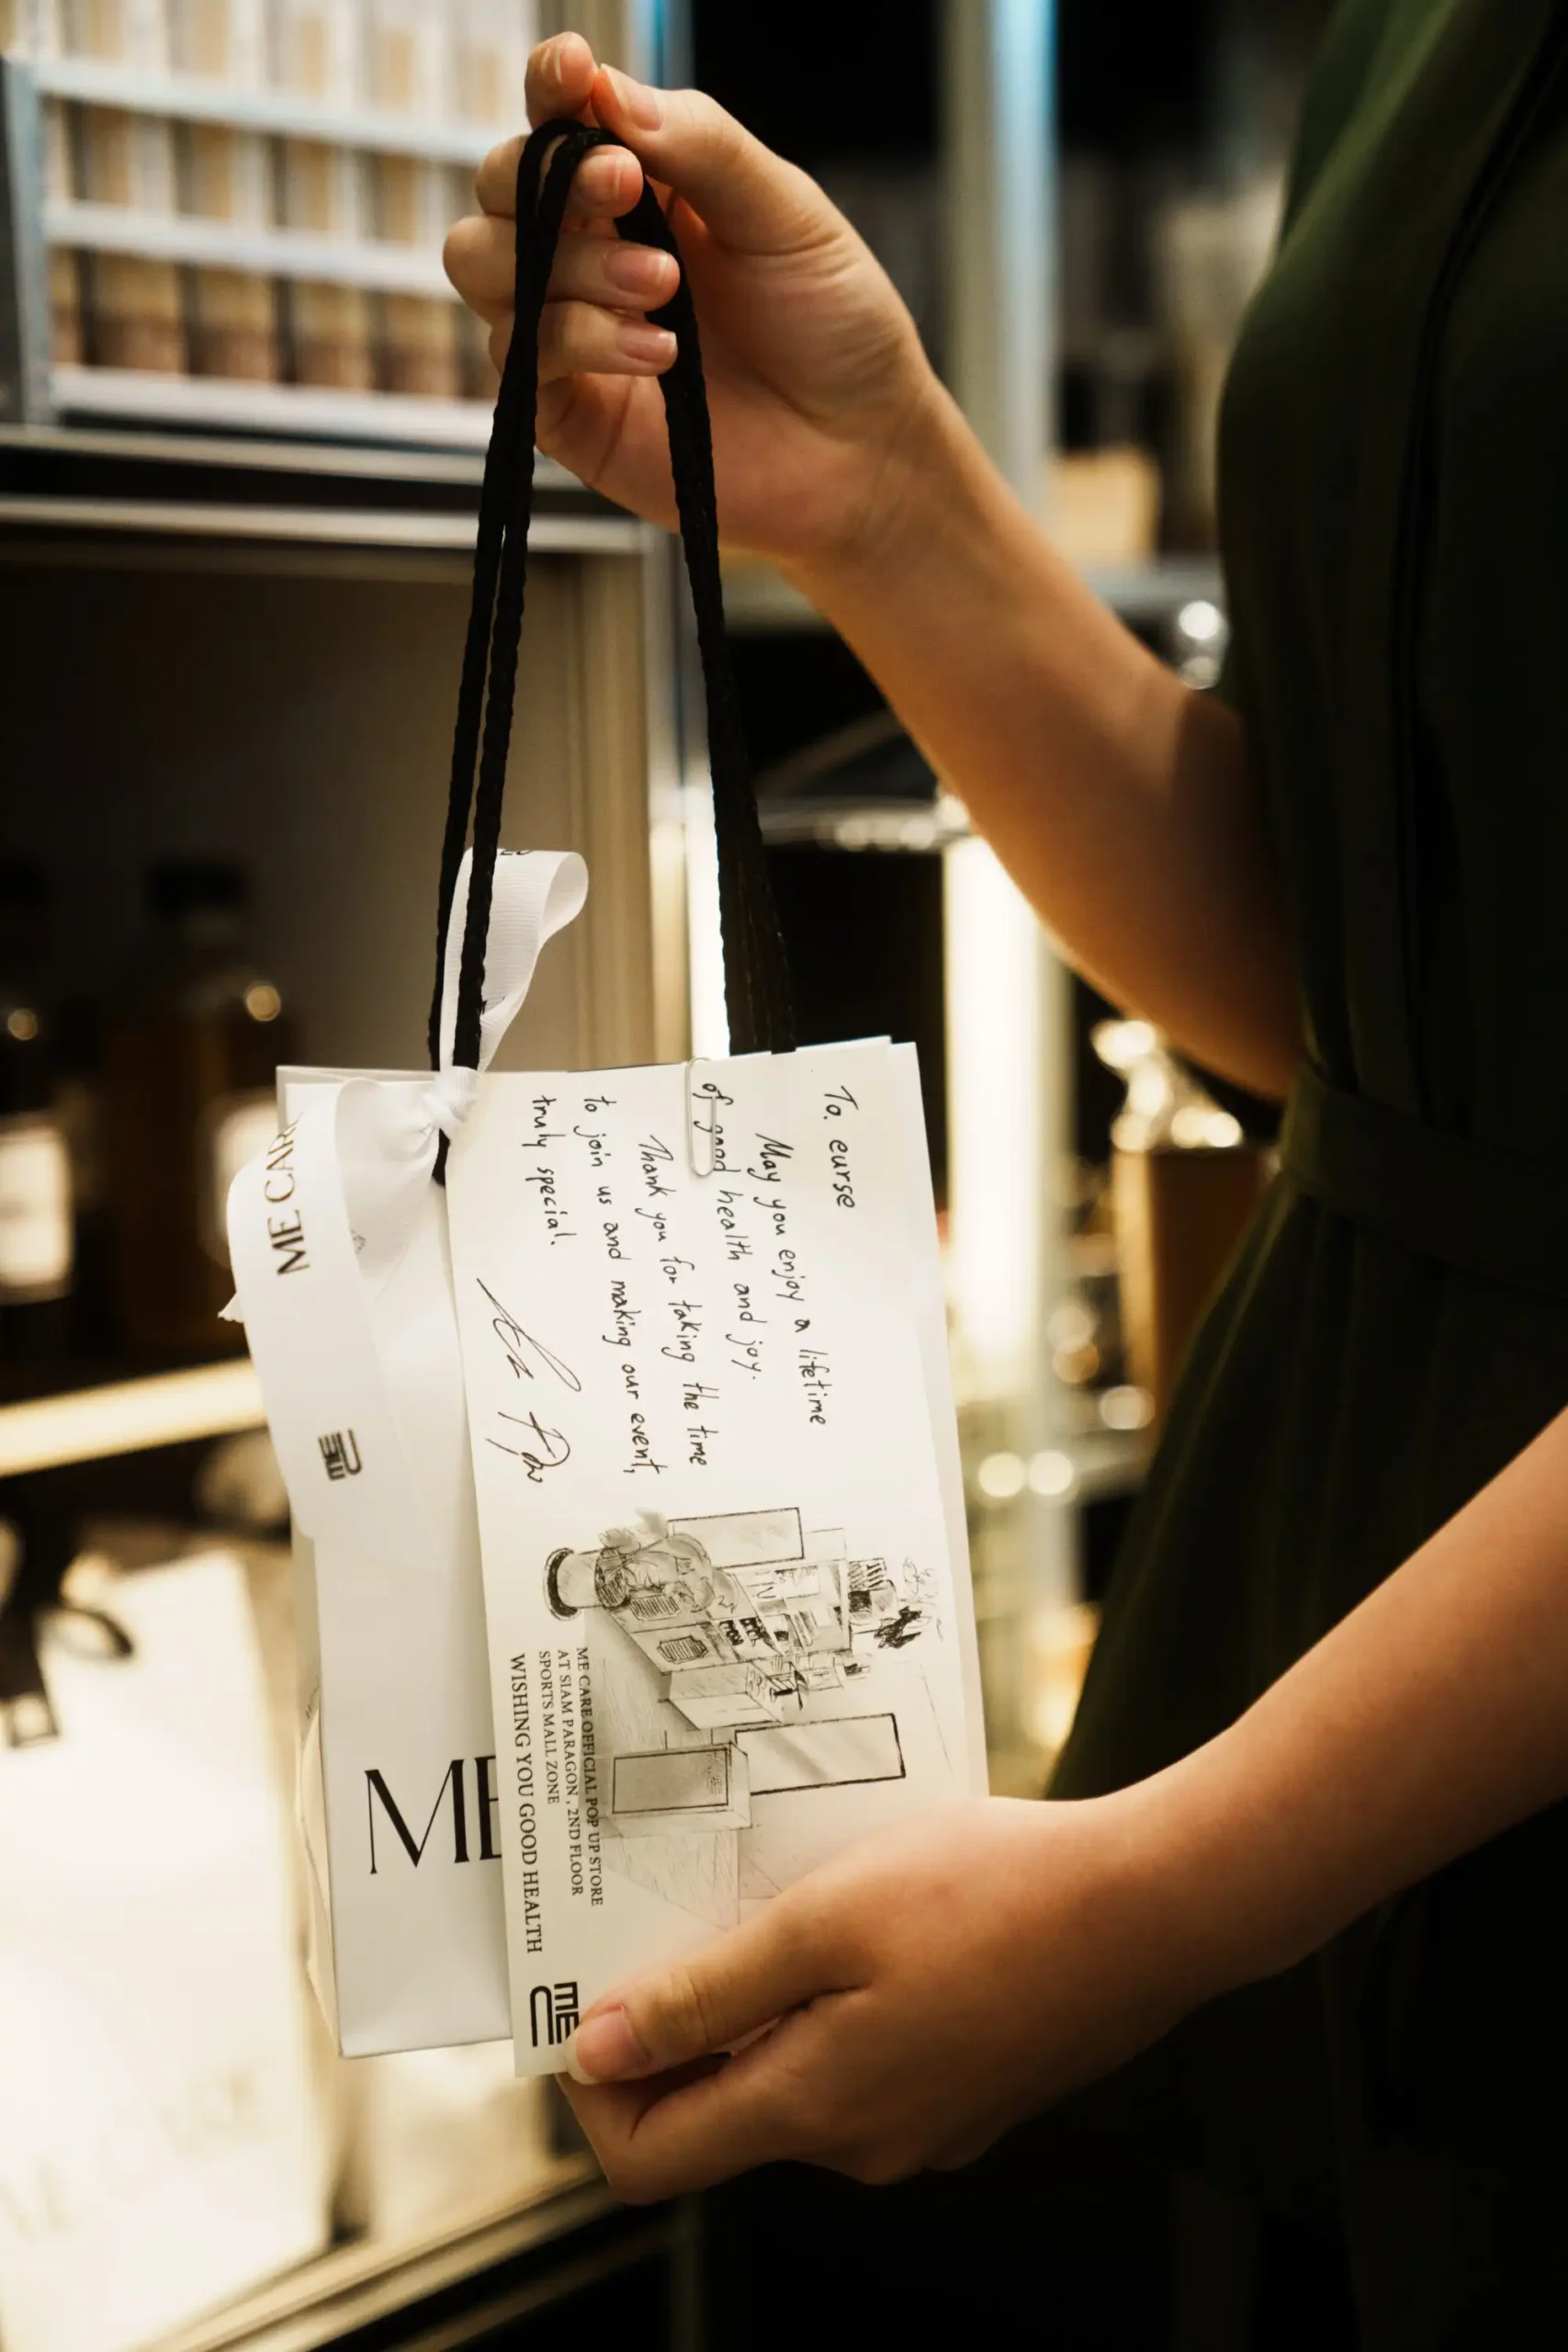 To. eurse
May you enjoy a lifetime
of good health and joy.
Thank you for taking the time
to join us and making our event,
truly special.
ME CARE OFFICIAL POP UP STORE
AT SIAM PARAGON , 2ND FLOOR
SPORTS MALL ZONE
WISHING YOU GOOD HEALTH
ME
ME CARE
ME
ME